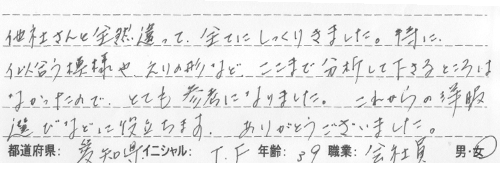 他社さんと全然違って、全てにしっくりきました。特に、
似合う模様や、えりの形など ここまで分析して下さるところは
なかったので、とても参考になりました。これからの洋服
選びなどに役立ちます。ありがとうございました。
都道府県: 愛知県 イニシャル: T.F 年齢: 39 職業: 会社員 男・女